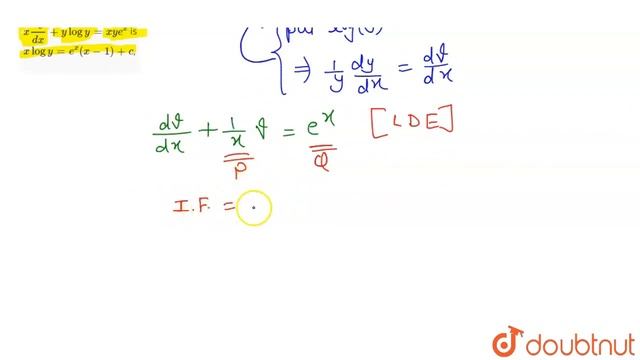 x dy/dx + y log y = xyeˣ is
x log y = eˣ(x − 1) + c.
put log(
⇒ 1/y dy/dx = dϑ/dx
dϑ/dx + 1/x ϑ = eˣ [LDE]
P Q
I.F. =
doubtnut